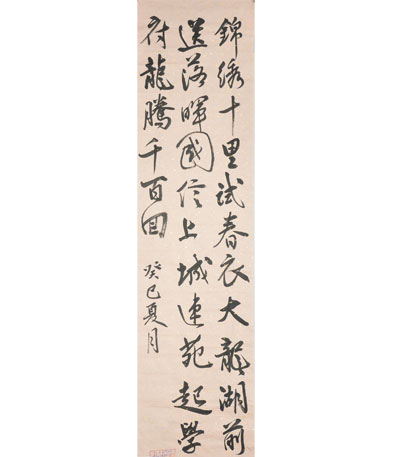 錦绣十里試春衣大龍湖前
送落暉國信上城連苑起學
府龍騰千百回
癸巳夏月